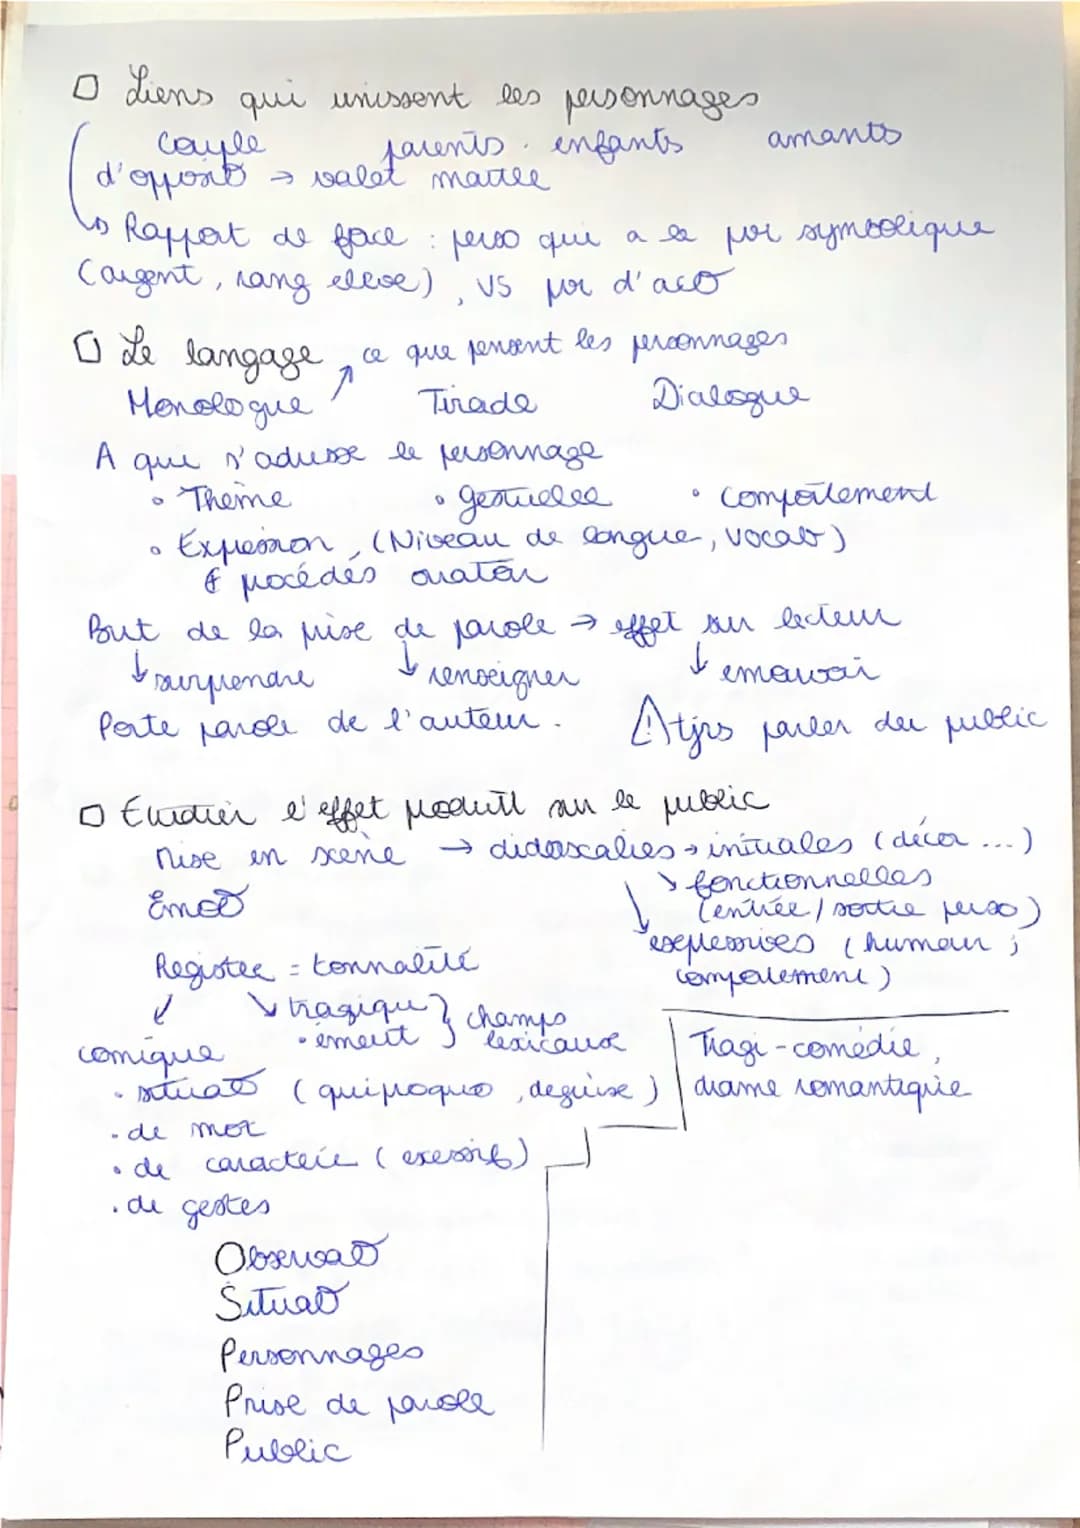 □ Liens qui unissent les personnages
Couple parents. enfants amants
d'opposit° → valet maître
↳ Rapport de force : perso qui a le pvr symbolique
(argent, rang élevé), VS pvr d'act°
□ Le langage, ce que pensent les personnages
Monologue ↗ Tirade Dialogue
A qui s'adresse le personnage
• Thème • gestuelle • comportement
• Expression, (Niveau de langue, vocab)
& procédés oratoir
But de la prise de parole → effet sur lecteur
↓ surprendre ↓ renseigner ↓ emouvoir
Porte parole de l'auteur. ⚠ tjrs parler du public
□ Etudier l'effet produit sur le public
Mise en scène → didascalies → initiales (décor ...)
↘ fonctionnelles
Emot° (entrée / sortie perso)
↘ expressives (humeur ;
Registre = tonnalité comportement)
↙ ↘ tragique } champs
comique • ément } lexicaux
Tragi-comédie,
• situat° (quiproquo, déguise) drame romantique
• de mot
• de caractère (excessif)
• de gestes
Observat°
Situat°
Personnages
Prise de parole
Public